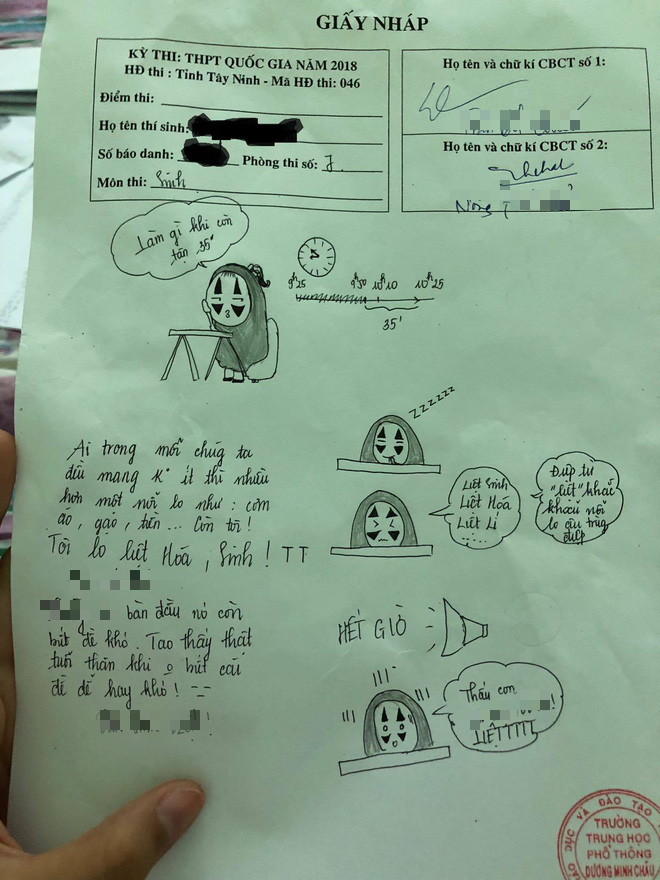 GIẤY NHÁP
KỲ THI: THPT QUỐC GIA NĂM 2018
HĐ thi : Tỉnh Tây Ninh - Mã HĐ thi: 046
Điểm thi:
Họ tên thí sinh:
Số báo danh: Phòng thi số: 7
Môn thi: Sinh
Họ tên và chữ kí CBCT số 1:
Họ tên và chữ kí CBCT số 2:
Nông
Làm gì khi còn
tận 35'
9h25 9h50 10h10 10h25
35'
zzzzzz
Ai trong mỗi chúg ta
đều mang k° ít thì nhiều
hơn một nỗi lo như : cơm
áo, gạo, tiền ... Còn tôi !
Tôi lo liệt Hóa, Sinh ! TT
bàn đầu nó còn
bít đề khó. Tao thấy thật
tuổi thân khi o bít cái
đề dễ hay khó !
Liệt Sinh
Liệt Hóa
Liệt Lí
.....
Đúp tư
"liệt" khắc
khoải nỗi
lo âu trùg
điệp
HẾT GIỜ
Thấu con
!
LIỆTTTTT
DỤC VÀ ĐÀO TẠO
TRƯỜNG
TRUNG HỌC
PHỔ THÔNG
DƯƠNG MINH CHÂU